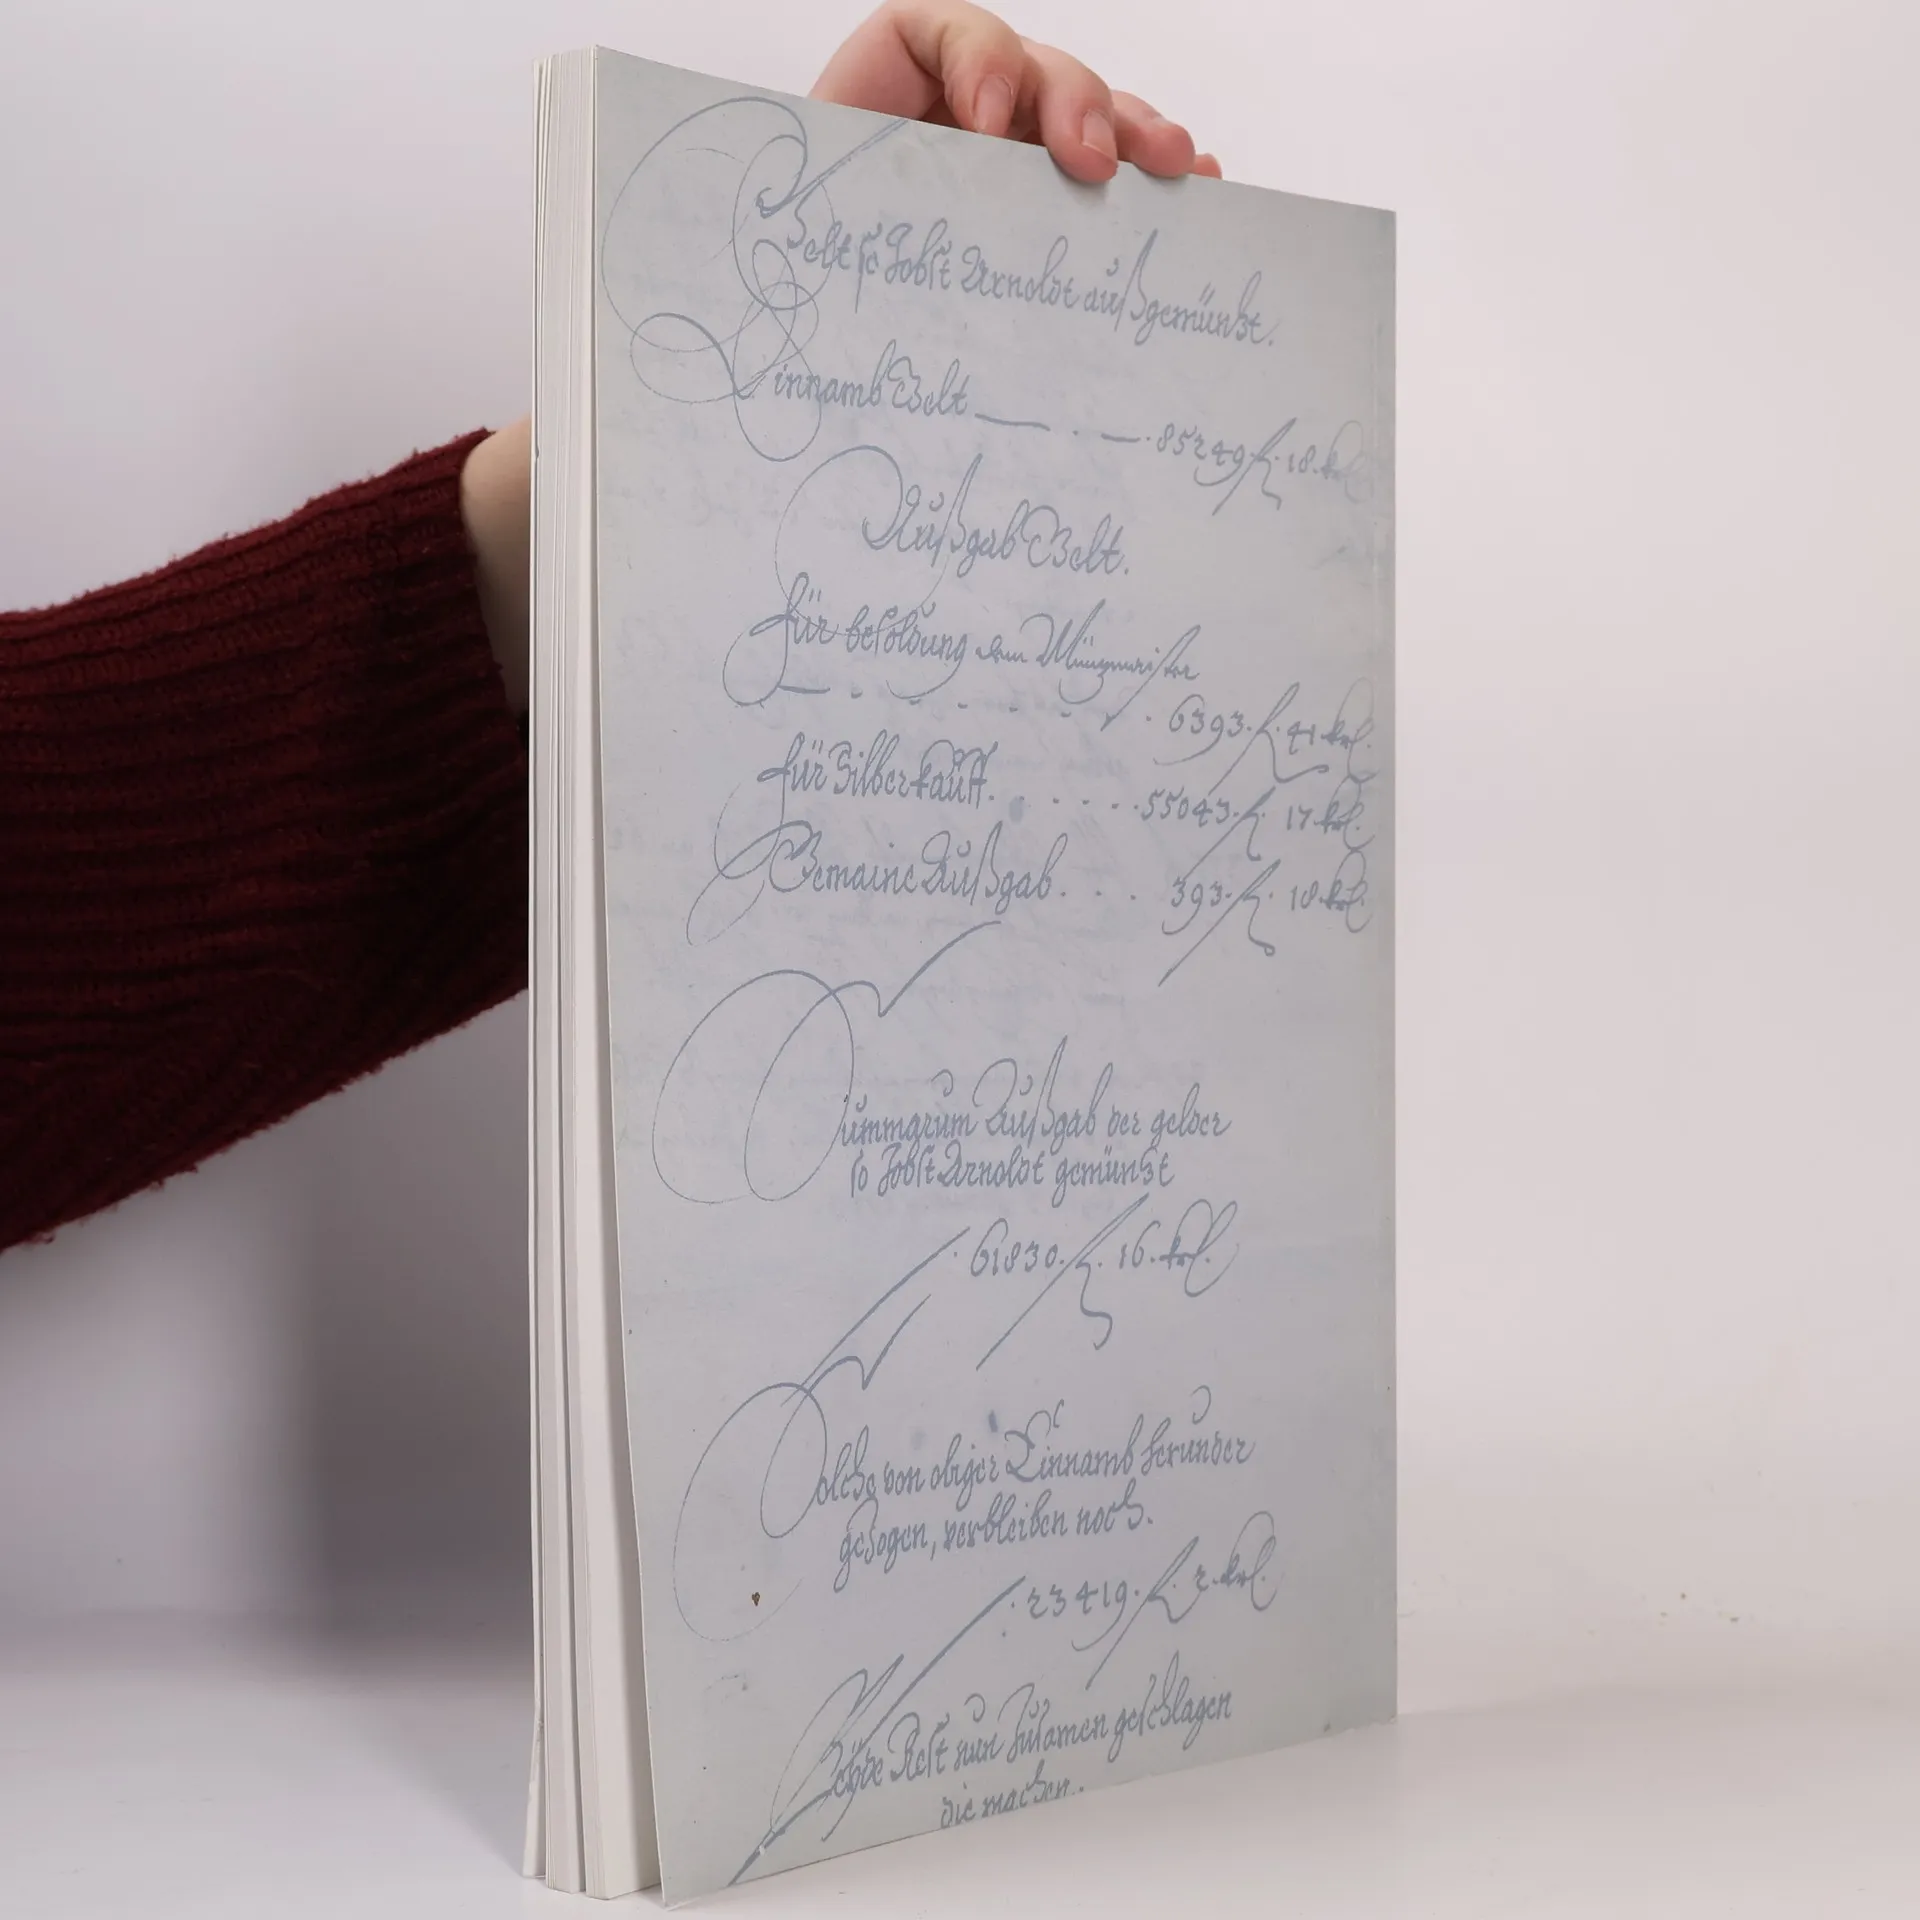 Gelt so Jobst Arnoldt außgemünzt.
Einnamb Gelt — . — . 85249. f. 18. krl.
Außgab Gelt.
für besoldung dem Münzmaister
. . . . . . . 6393. f. 41. krl.
für Silberkauff. . . . . . 55043. f. 17. krl.
Gemaine Außgab. . . . 393. f. 18. krl.
Summarum Außgab der gelder
so Jobst Arnoldt gemünzt
. 61830. f. 16. krl.
Solche von obiger Einnamb herunder
gezogen, verbleiben noch.
. 23419. f. 2. krl.
Rest nun zusamen geschlagen
die machen.